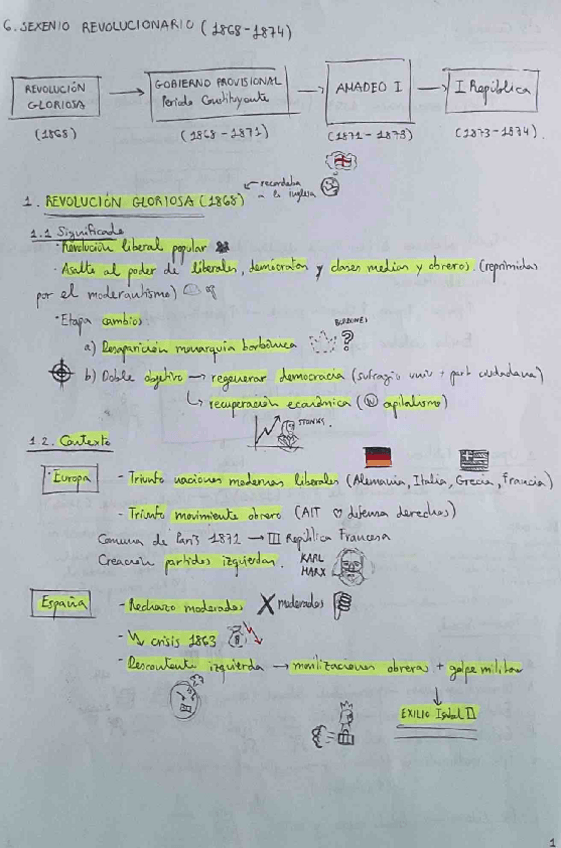 6. SEXENIO REVOLUCIONARIO (1868-1874)
REVOLUCIÓN GLORIOSA → GOBIERNO PROVISIONAL Periodo Constituyente → AMADEO I → I República
(1868) (1868-1871) (1871-1873) (1873-1874).
← recordaba a la inglesa
1. REVOLUCIÓN GLORIOSA (1868)
1.1 Significado
· Revolución liberal popular
· Asalto al poder de liberales, demócratas y clases medias y obreros. (reprimidas
por el moderantismo)
· Etapa cambios:
a) Desaparición monarquía borbónica BORBONES ?
b) Doble objetivo → regenerar democracia (sufragio univ + part ciudadana)
↳ recuperación económica (capitalismo)
STONKS.
1.2. Contexto
· Europa - Triunfo naciones modernas liberales (Alemania, Italia, Grecia, Francia)
- Triunfo movimiento obrero (AIT ♡ defensa derechos)
Comuna de París 1871 → III República Francesa
Creación partidos izquierdas. KARL MARX
España - Rechazo moderados X moderados
- ↘ crisis 1863
- Descontento izquierda → movilizaciones obreras + golpe militar
↓
EXILIO Isabel II
1